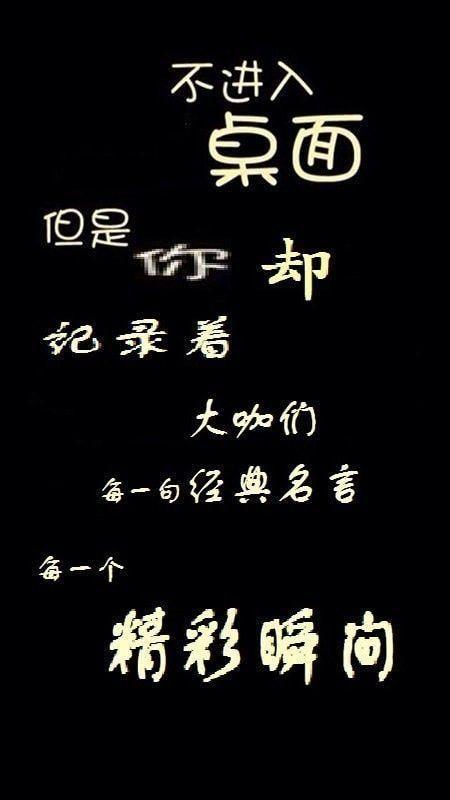 不进入
桌面
但是你却
记录着
大咖们
每一句经典名言
每一个
精彩瞬间